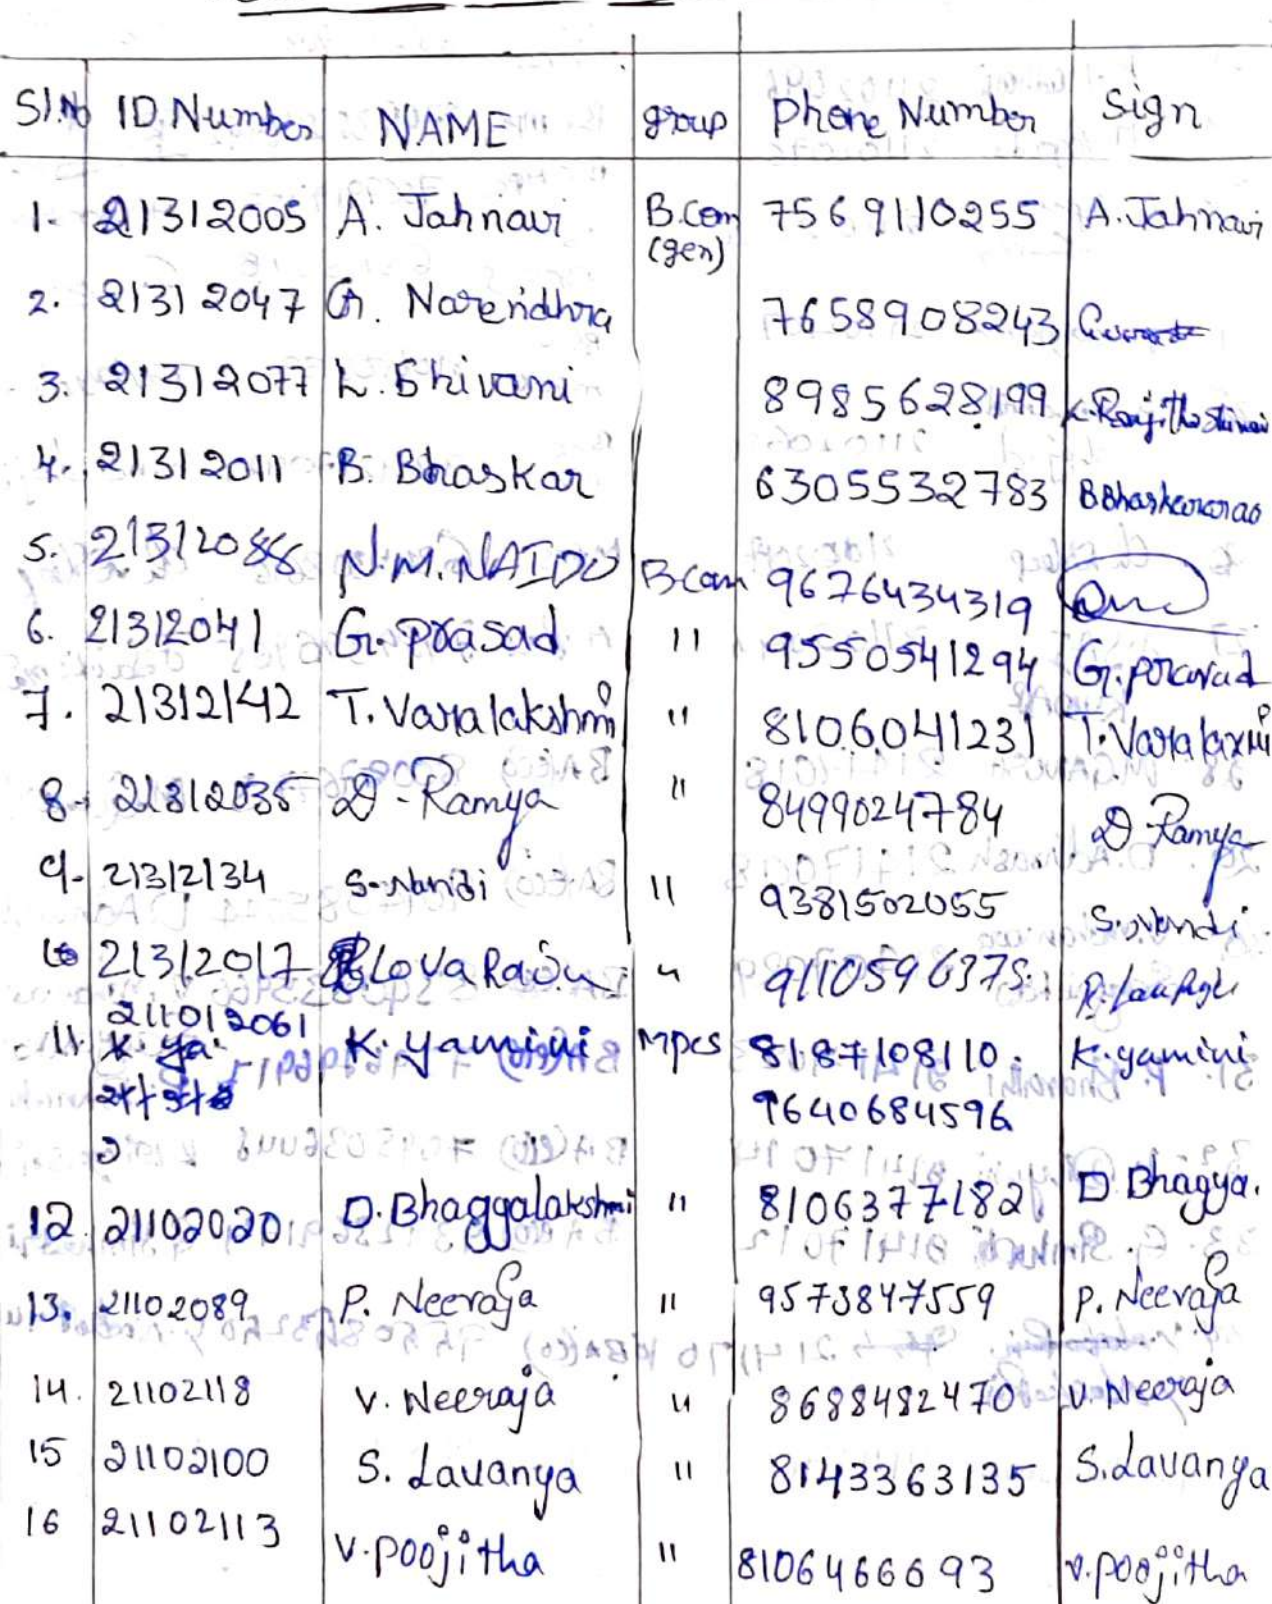 Sl.No ID Number NAME group Phone Number Sign
1. 21312005 A. Jahnavi B.Com (gen) 7569110255 A. Jahnavi
2. 21312047 G. Narendhra 7658908243
3. 21312077 L. Shivani 8985628199
4. 21312011 B. Bhaskar 6305532783 B Bhaskararao
5. 21312088 N.M. NAIDU B com 9676434319
6. 21312041 G. prasad " 9550541294 G. prasad
7. 21312142 T. Varalakshmi " 8106041231 T. Varalaxmi
8. 21312035 D. Ramya " 8499024784 D Ramya
9. 21312134 S. Nandi " 9381502055 S. Nandi
10 21312017 R. Lova Raju " 9110596375
11. 211012061 K. yamini Mpcs 8187108110. K. yamini
9640684596
12. 21102020 D. Bhaggalakshmi " 8106377182 D Bhagya.
13. 21102089 P. Neeraja " 9573847559 P. Neeraja
14. 21102118 V. Neeraja " 8688482470 V. Neeraja
15 21102100 S. Lavanya " 8143363135 S. Lavanya
16 21102113 V. Poojitha " 8106466693 V. Poojitha